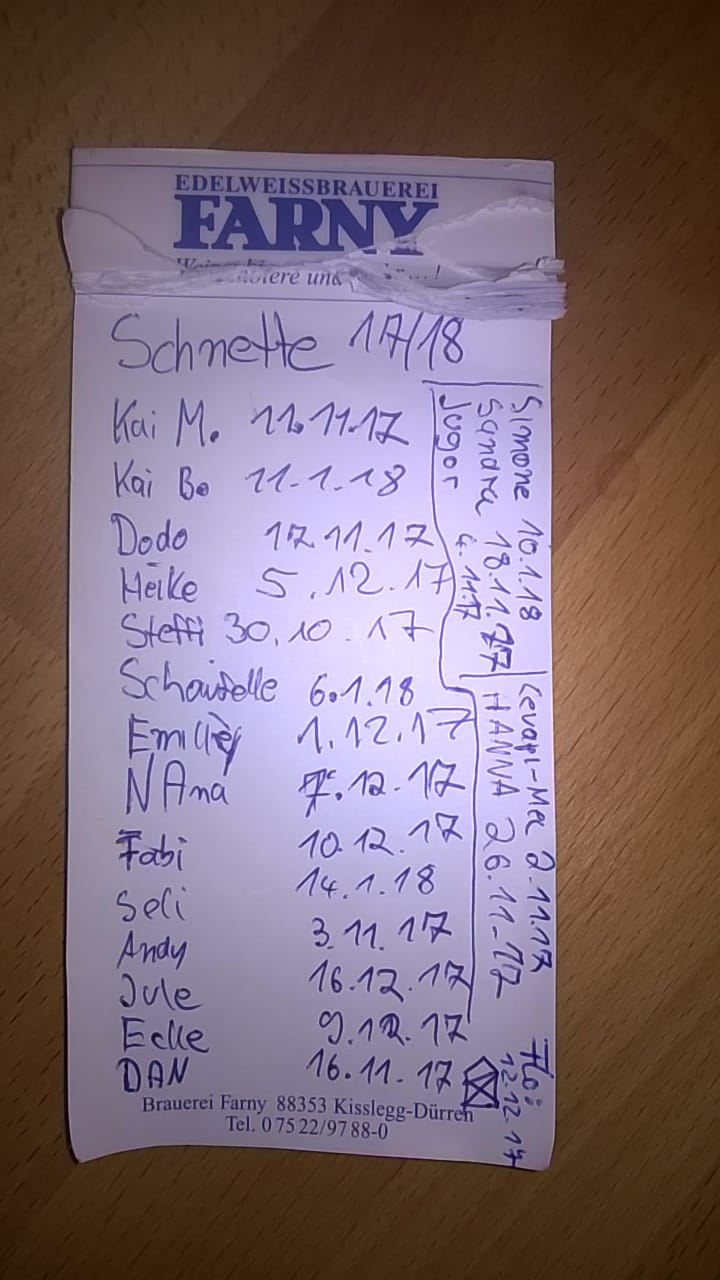 EDELWEISSBRAUEREI
FARNY
Schnette 17/18
Kai M. 11.11.17
Kai B. 11.1.18
Dodo 17.11.17
Heike 5.12.17
Steffi 30.10.17
Schaufelle 6.1.18
Emilie 1.12.17
NAna 7.12.17
Fabi 10.12.17
Seli 14.1.18
Andy 3.11.17
Jule 16.12.17
Ecke 9.12.17
DAN 16.11.17
Simone 10.1.18
Sandra 18.11.17
Jugor 4.11.17
2.11.17
HANNA 26.11.17
Flo: 12.12.17
Brauerei Farny 88353 Kisslegg-Dürren
Tel. 0 75 22/97 88-0